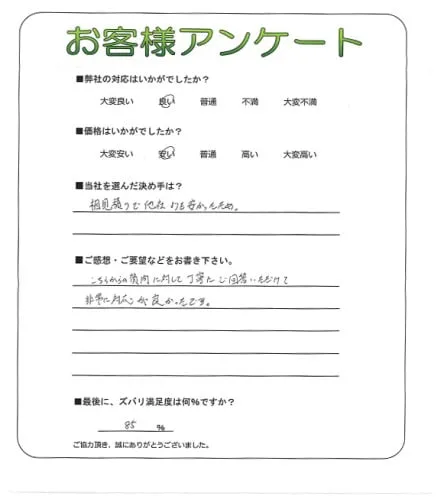 お客様アンケート
■弊社の対応はいかがでしたか?
大変良い 良い 普通 不満 大変不満
■価格はいかがでしたか?
大変安い 安い 普通 高い 大変高い
■当社を選んだ決め手は?
相見積りで他社より安かったため。
■ご感想・ご要望などをお書き下さい。
こちらからの質問に対して丁寧にご回答いただけて
非常に対応が良かったです。
■最後に、ズバリ満足度は何%ですか?
85 %
ご協力頂き、誠にありがとうございました。